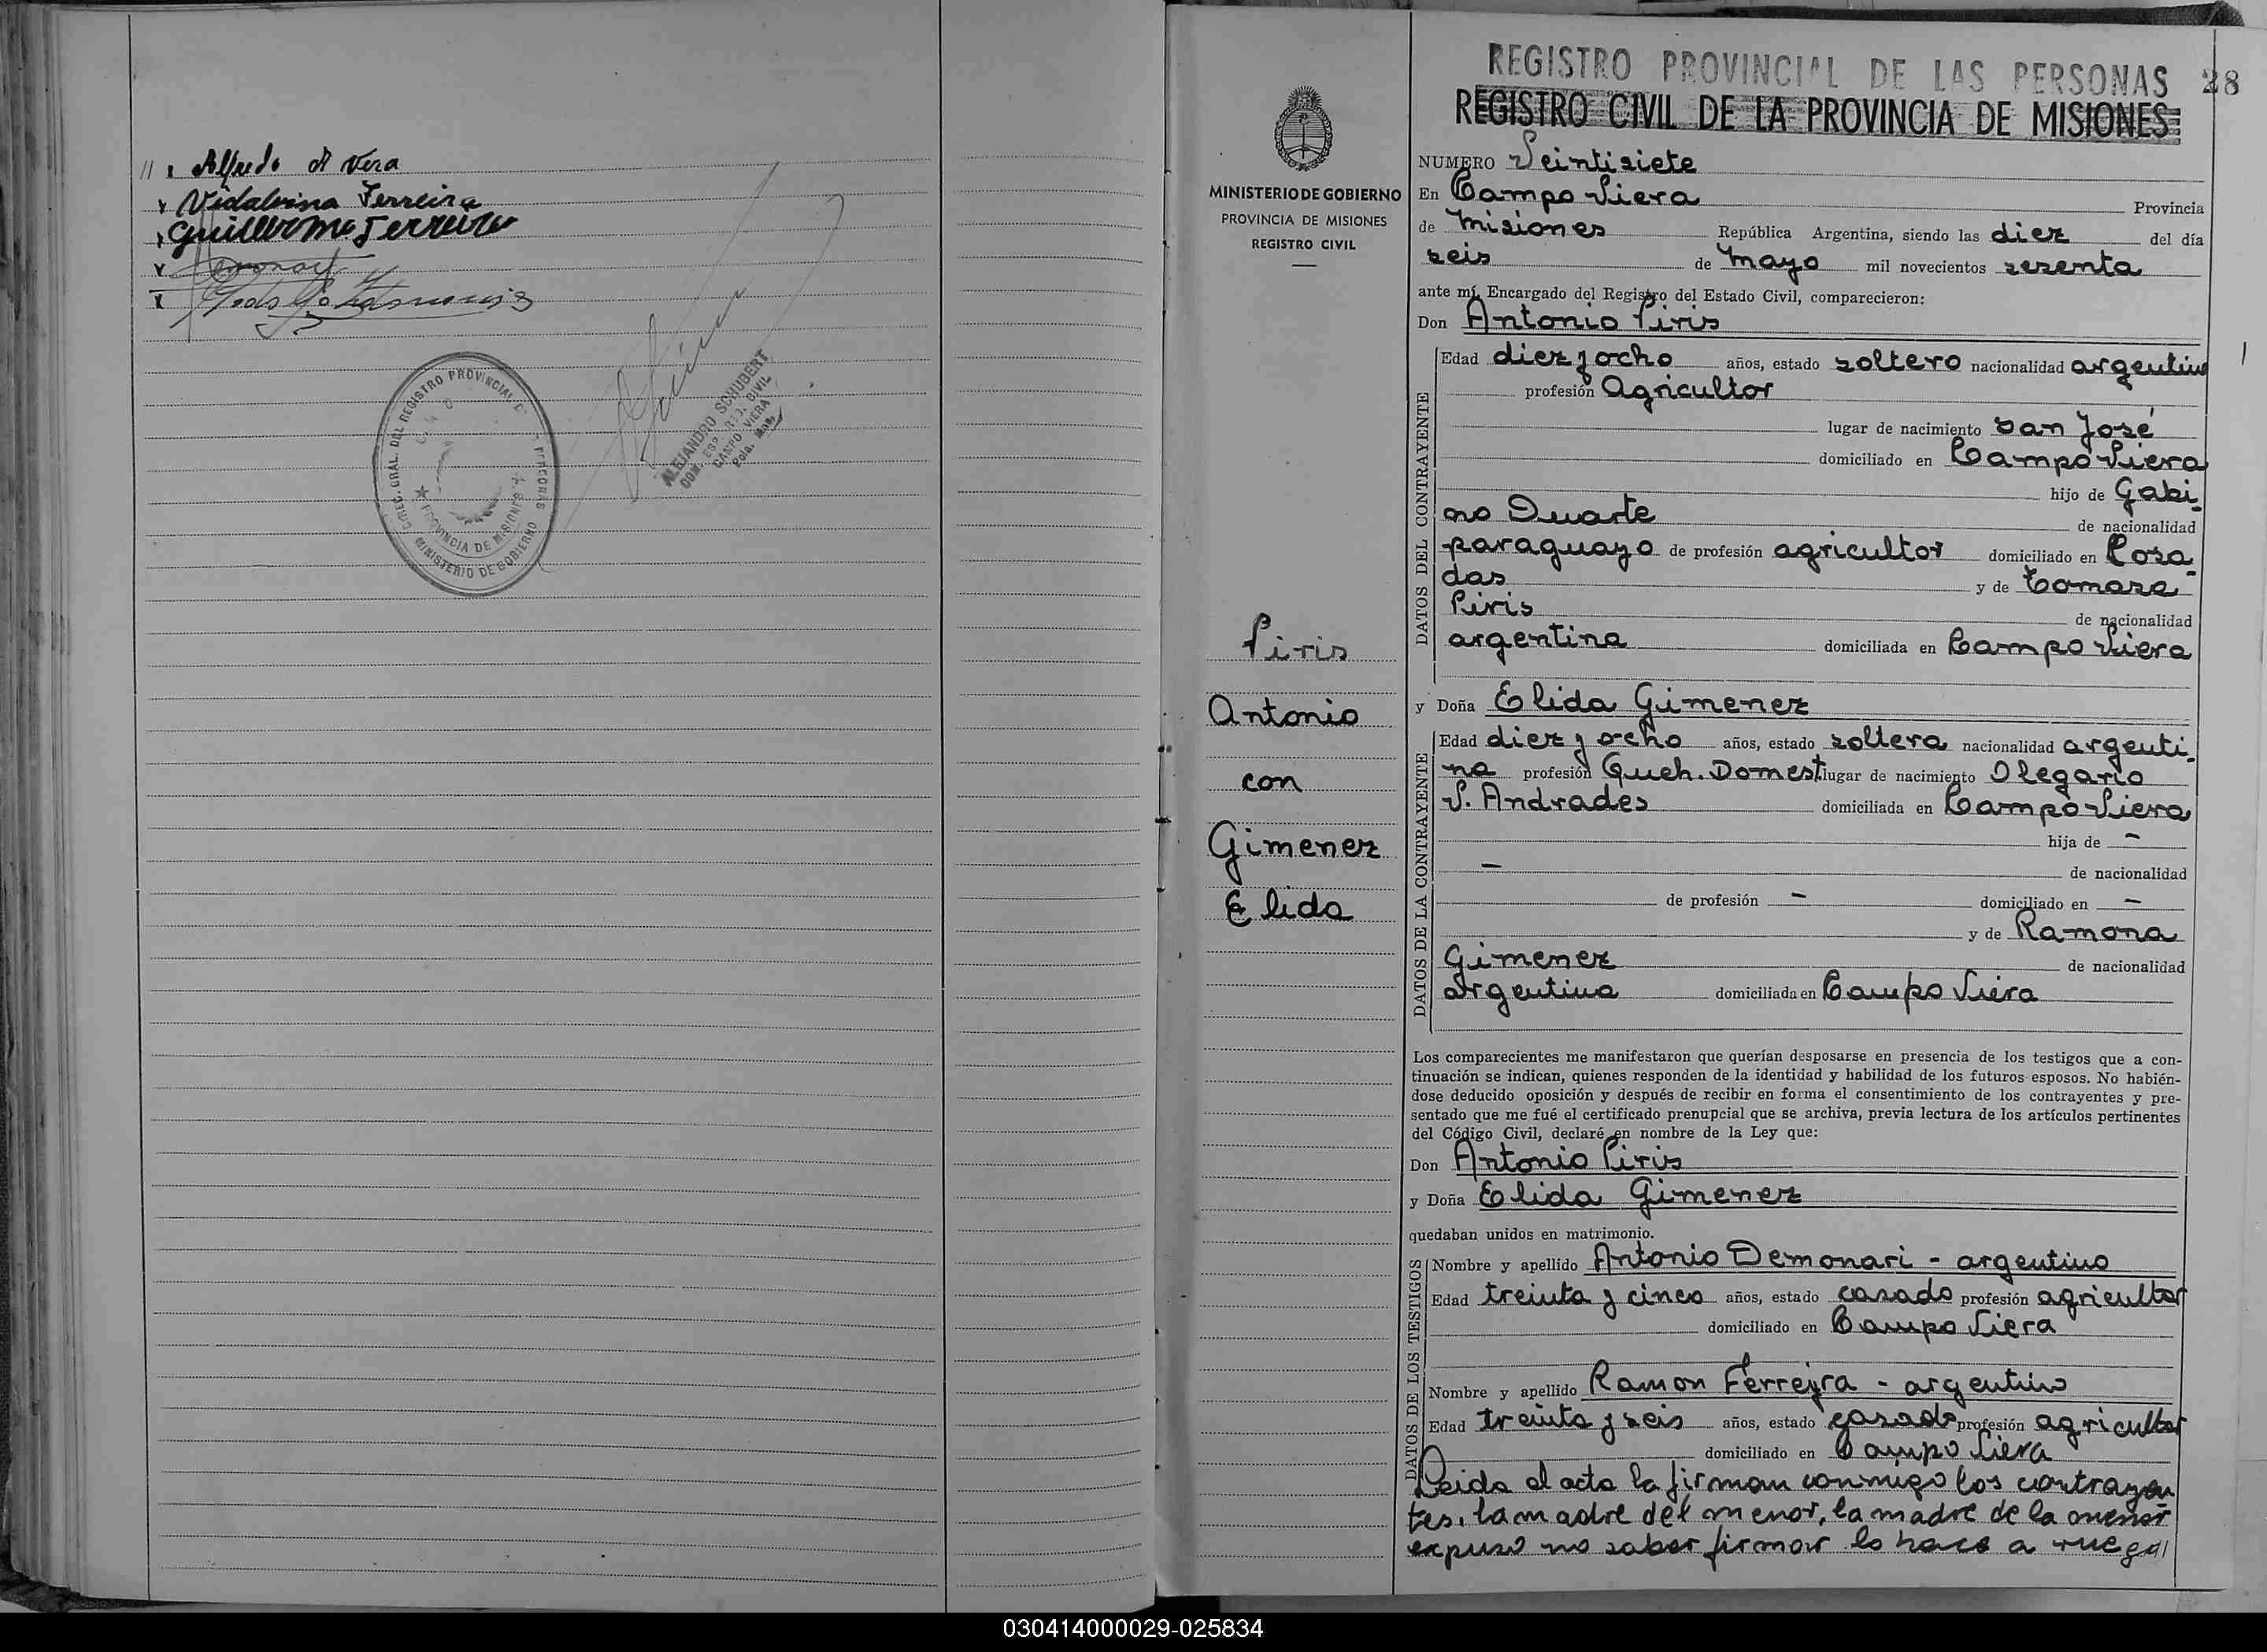 // x Alfredo A Vera
x Vidalvina Ferreira
x Guillermo Ferreira
x
x
DIREC. GRAL. DEL REGISTRO PROVINCIAL DE PERSONAS
PROVINCIA DE MISIONES
MINISTERIO DE GOBIERNO
ALEJANDRO SCHUBERT
CAMPO VIERA
REGISTRO PROVINCIAL DE LAS PERSONAS 28
REGISTRO CIVIL DE LA PROVINCIA DE MISIONES
MINISTERIO DE GOBIERNO
PROVINCIA DE MISIONES
REGISTRO CIVIL
Piris
Antonio
con
Gimenez
Elida
NUMERO Veintisiete
En Campo Viera Provincia
de Misiones República Argentina, siendo las diez del día
seis de Mayo mil novecientos sesenta
ante mí, Encargado del Registro del Estado Civil, comparecieron:
Don Antonio Piris
DATOS DEL CONTRAYENTE
Edad diez y ocho años, estado soltero nacionalidad argentino
profesión Agricultor
lugar de nacimiento San José
domiciliado en Campo Viera
hijo de Gabi-
no Duarte de nacionalidad
paraguayo de profesión agricultor domiciliado en Posa-
das y de Tomasa
Piris de nacionalidad
argentina domiciliada en Campo Viera
y Doña Elida Gimenez
DATOS DE LA CONTRAYENTE
Edad diez y ocho años, estado soltera nacionalidad argenti-
na profesión Queh. Domest. lugar de nacimiento Olegario
V. Andrades domiciliada en Campo Viera
hija de –
– de nacionalidad
de profesión – domiciliado en –
y de Ramona
Gimenez de nacionalidad
argentina domiciliada en Campo Viera
Los comparecientes me manifestaron que querían desposarse en presencia de los testigos que a con-
tinuación se indican, quienes responden de la identidad y habilidad de los futuros esposos. No habién-
dose deducido oposición y después de recibir en forma el consentimiento de los contrayentes y pre-
sentado que me fué el certificado prenupcial que se archiva, previa lectura de los artículos pertinentes
del Código Civil, declaré en nombre de la Ley que:
Don Antonio Piris
y Doña Elida Gimenez
quedaban unidos en matrimonio.
DATOS DE LOS TESTIGOS
Nombre y apellido Antonio Demonari - argentino
Edad treinta y cinco años, estado casado profesión agricultor
domiciliado en Campo Viera
Nombre y apellido Ramon Ferreyra - argentino
Edad treinta y seis años, estado casado profesión agricultor
domiciliado en Campo Viera
Leida el acta la firman conmigo los contrayen
tes, la madre del menor, la madre de la menor
expuso no saber firmar lo hace a ruego //
030414000029-025834